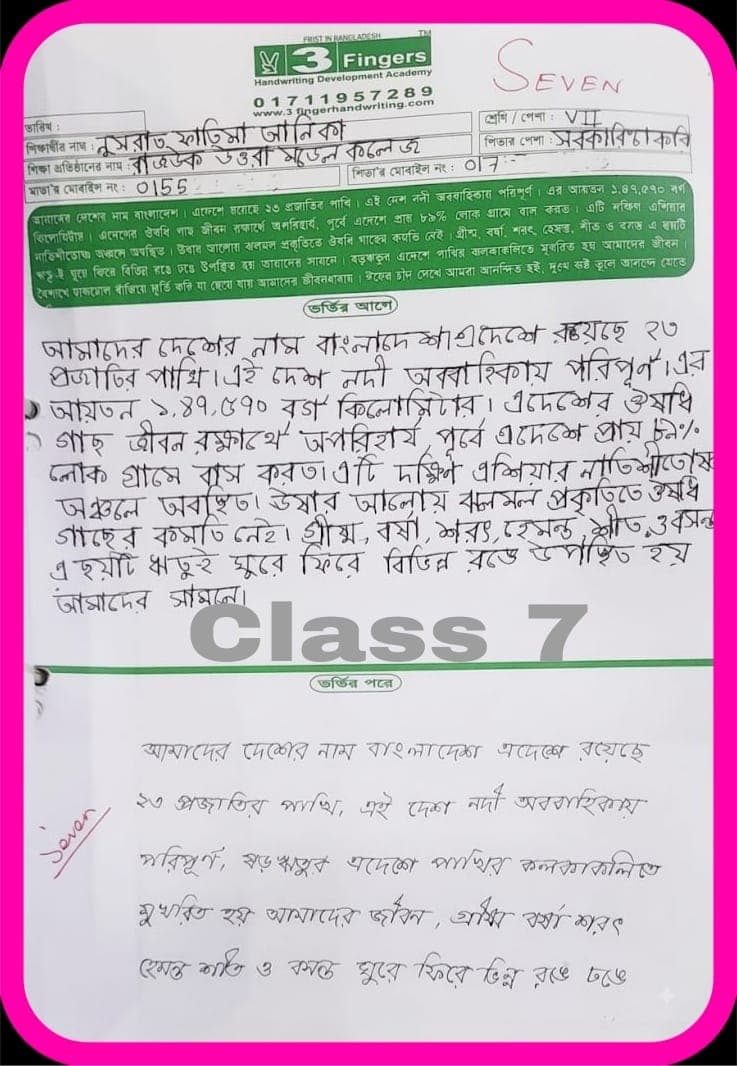 FRIST IN BANGLADESH
TM
3 Fingers
Handwriting Development Academy
01711957289
www.3fingerhandwriting.com
SEVEN
তারিখ :
শ্রেণি / পেশা : VII
শিক্ষার্থীর নাম : নুসরাত ফাতিমা আনিকা
পিতার পেশা : সরকারি চাকরি
শিক্ষা প্রতিষ্ঠানের নাম : রাজউক উত্তরা মডেল কলেজ
পিতা'র মোবাইল নং : 017
মাতা'র মোবাইল নং : 0155
আমাদের দেশের নাম বাংলাদেশ। এদেশে রয়েছে ২৩ প্রজাতির পাখি। এই দেশ নদী অববাহিকায় পরিপূর্ণ। এর আয়তন ১,৪৭,৫৭০ বর্গ
কিলোমিটার। এদেশের ঔষধি গাছ জীবন রক্ষার্থে অপরিহার্য, পূর্বে এদেশে প্রায় ৮৯% লোক গ্রামে বাস করত। এটি দক্ষিণ এশিয়ার
নাতিশীতোষ্ণ অঞ্চলে অবস্থিত। উষার আলোয় ঝলমল প্রকৃতিতে ঔষধি গাছের কমতি নেই। গ্রীষ্ম, বর্ষা, শরৎ, হেমন্ত, শীত ও বসন্ত এ ছয়টি
ঋতুই ঘুরে ফিরে বিভিন্ন রঙে ঢঙে উপস্থিত হয় আমাদের সামনে। ষড়ঋতুর এদেশে পাখির কলকাকলিতে মুখরিত হয় আমাদের জীবন।
বৈশাখে ঢাকঢোল বাজিয়ে ফূর্তি করি যা ছেয়ে যায় আমাদের জীবনধারায়। ঈদের চাঁদ দেখে আমরা আনন্দিত হই, দুঃখ কষ্ট ভুলে আনন্দে মেতে
ভর্তির আগে
আমাদের দেশের নাম বাংলাদেশ। এদেশে রয়েছে ২৩
প্রজাতির পাখি। এই দেশ নদী অববাহিকায় পরিপূর্ণ। এর
আয়তন ১,৪৭,৫৭০ বর্গ কিলোমিটার। এদেশের ঔষধি
গাছ জীবন রক্ষার্থে অপরিহার্য, পূর্বে এদেশে প্রায় ৮৯%
লোক গ্রামে বাস করত। এটি দক্ষিণ এশিয়ার নাতিশীতোষ্ণ
অঞ্চলে অবস্থিত। উষার আলোয় ঝলমল প্রকৃতিতে ঔষধি
গাছের কমতি নেই। গ্রীষ্ম, বর্ষা, শরৎ, হেমন্ত, শীত ও বসন্ত
এ ছয়টি ঋতুই ঘুরে ফিরে বিভিন্ন রঙে উপস্থিত হয়
আমাদের সামনে।
Class 7
ভর্তির পরে
আমাদের দেশের নাম বাংলাদেশ এদেশে রয়েছে
২৩ প্রজাতির পাখি, এই দেশ নদী অববাহিকায়
seven
পরিপূর্ণ, ষড়ঋতুর এদেশে পাখির কলকাকলিতে
মুখরিত হয় আমাদের জীবন, গ্রীষ্ম বর্ষা শরৎ
হেমন্ত শীত ও বসন্ত ঘুরে ফিরে ভিন্ন রঙে ঢঙে